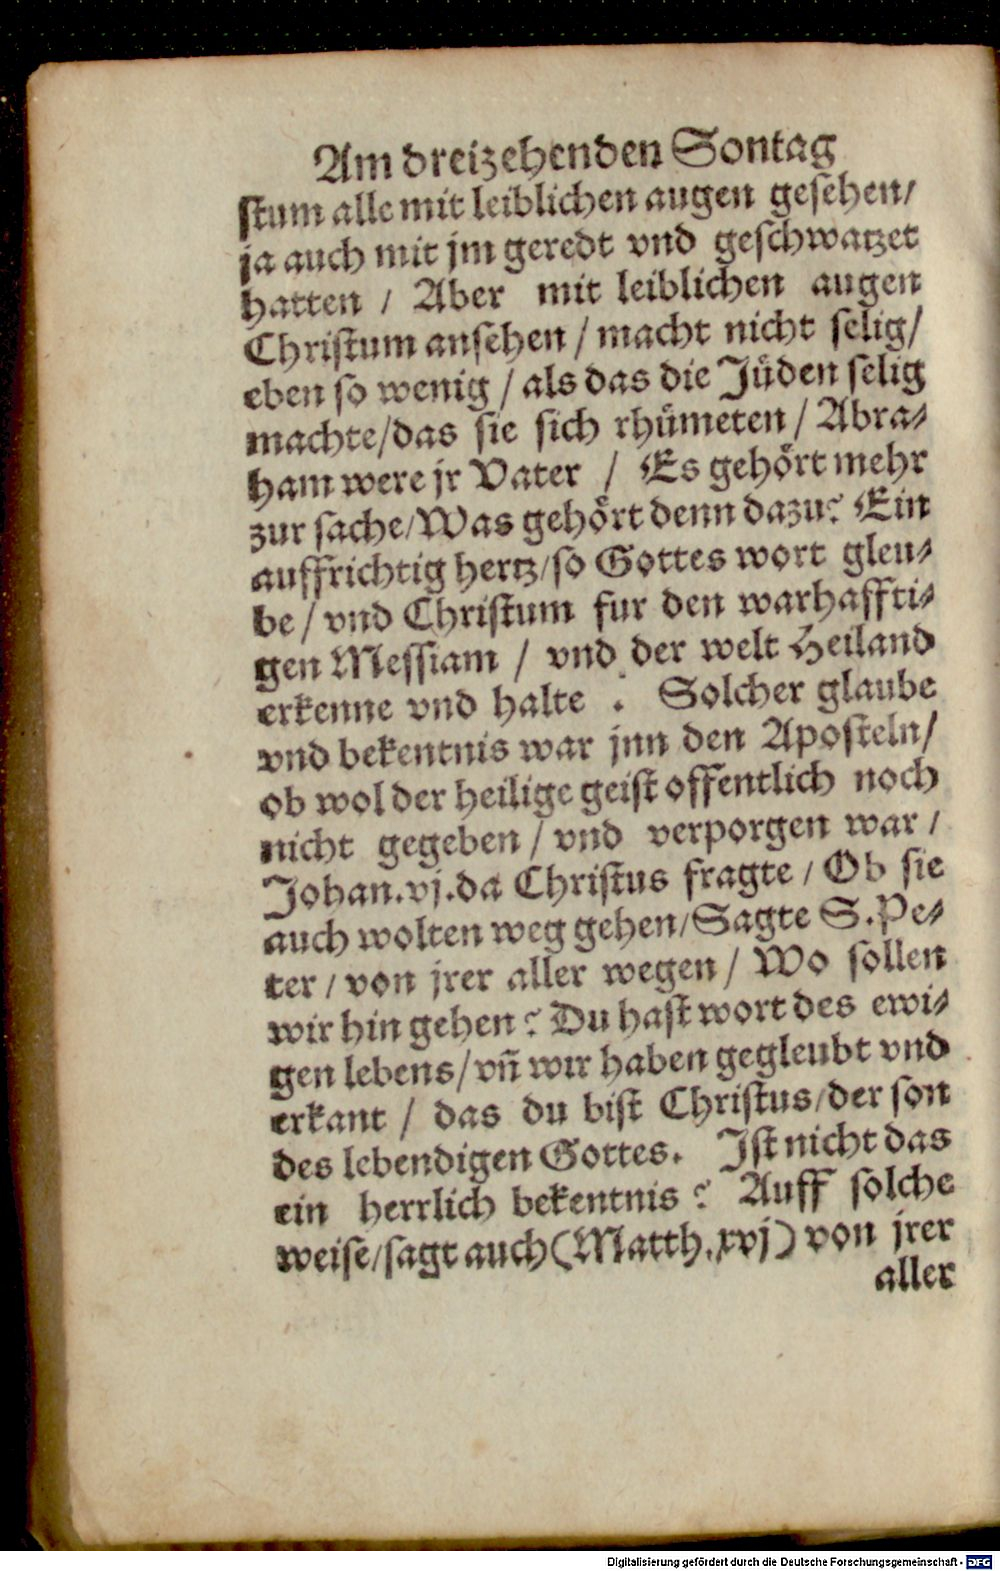 Am dreizehenden Sontag
ſtum alle mit leiblichen augen geſehen/
ja auch mit jm geredt vnd geſchwatzet
hatten / Aber mit leiblichen augen
Chriſtum anſehen / macht nicht ſelig/
eben ſo wenig / als das die Jüden ſelig
machte/das ſie ſich rhümeten / Abra⸗
ham were jr Vater / Es gehört mehr
zur ſache/Was gehört denn dazu? Ein
auffrichtig hertz/ſo Gottes wort gleu⸗
be / vnd Chriſtum fur den warhaffti⸗
gen Meſſiam / vnd der welt Heiland
erkenne vnd halte . Solcher glaube
vnd bekentnis war jnn den Apoſteln/
ob wol der heilige geiſt offentlich noch
nicht gegeben / vnd verporgen war /
Johan.vj.da Chriſtus fragte / Ob ſie
auch wolten weg gehen/Sagte S.Pe⸗
ter / von jrer aller wegen / Wo ſollen
wir hin gehen? Du haſt wort des ewi⸗
gen lebens/vñ wir haben gegleubt vnd
erkant / das du biſt Chriſtus/der ſon
des lebendigen Gottes. Iſt nicht das
ein herrlich bekentnis? Auff ſolche
weiſe/ſagt auch (Matth.xvj) von jrer
aller
Digitalisierung gefördert durch die Deutsche Forschungsgemeinschaft - DFG